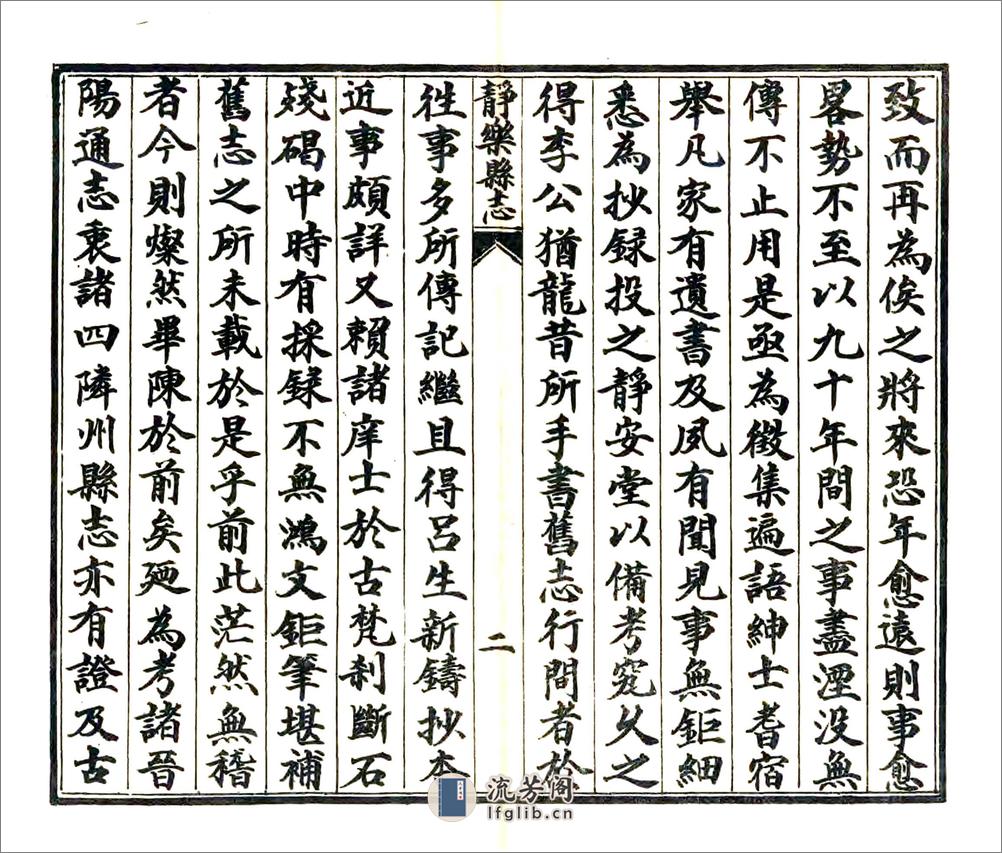 致而再為俟之將來恐年愈遠則事愈
畧勢不至以九十年間之事盡湮没無
傳不止用是亟為徵集遍語紳士耆宿
舉凡家有遺書及夙有聞見事無鉅細
悉為抄録投之靜安堂以備考究乆之
得李公猶龍昔所手書舊志行間者於
靜樂縣志
二
徃事多所傳記繼且得呂生新鑄抄本
近事頗詳又賴諸庠士於古梵刹斷石
殘碣中時有採録不無鴻文鉅筆堪補
舊志之所未載於是乎前此茫然無稽
者今則燦然畢陳於前矣廼為考諸晉
陽通志衷諸四隣州縣志亦有證及古
流芳阁
lfglib.cn